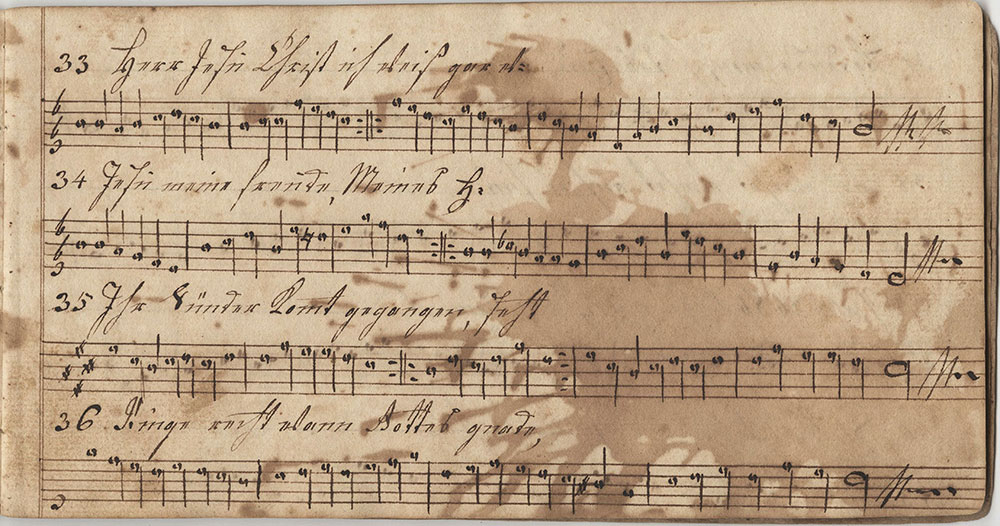 33 Herr Jesu Christ ich weiß gar w:
34 Jesu meine freude, Meines H:
35 Ihr Sünder komt gegangen, seht
36 Ringe recht wann Gottes gnade,